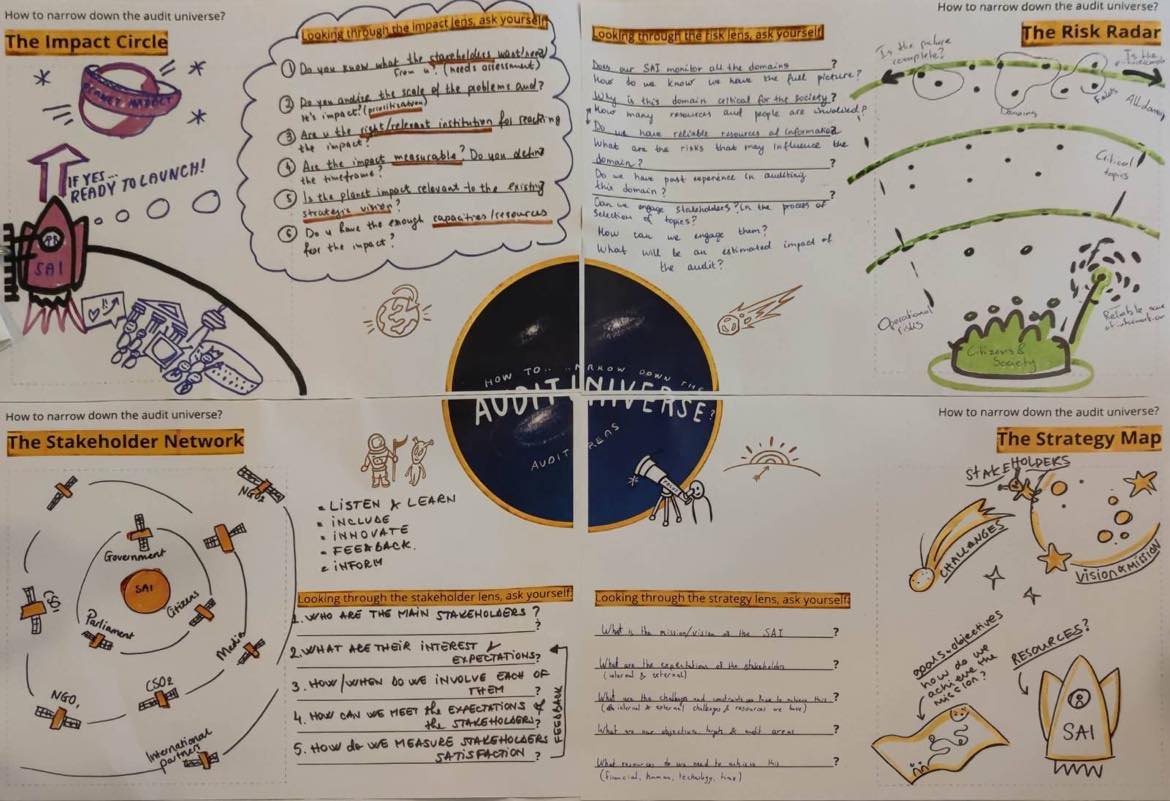 How to narrow down the audit universe?
The Impact Circle
PLANET IMPACT
IF YES...
READY TO LAUNCH!
SAI
Looking through the impact lens, ask yourself
1 Do you know what the stakeholders want/need
from u? (needs assessment)
2 Do you analize the scale of the problems and?
it's impact? (prioritisation)
3 Are u the right/relevant institution for reaching
the impact?
4 Are the impact measurable? Do you define
the timeframe?
5 Is the planet impact relevant to the existing
strategic vision?
6 Do u have the enough capacities/resources
for the impact?
How to narrow down the audit universe?
The Risk Radar
Looking through the risk lens, ask yourself
Does our SAI monitor all the domains?
How do we know we have the full picture?
Why is this domain critical for the society?
How many resources and people are involved?
Do we have reliable resources of information?
What are the risks that may influence the
domain?
Do we have past experience in auditing
this domain?
Can we engage stakeholders? In the process of
selection of topics?
How can we engage them?
What will be an estimated impact of
the audit?
Is the picture
complete?
Is the
Domains
Fields
All domains
Critical
topics
Operational
risks
Reliable source
of information
Citizens &
Society
HOW TO... NARROW DOWN THE
AUDIT UNIVERSE?
AUDIT AREAS
How to narrow down the audit universe?
The Stakeholder Network
NGO2
Government
SAI
Citizens
CSO1
Parliament
Media
CSO2
NGO1
International
partner
LISTEN & LEARN
INCLUDE
INNOVATE
FEEDBACK.
INFORM
Looking through the stakeholder lens, ask yourself:
1. WHO ARE THE MAIN STAKEHOLDERS?
?
2. WHAT ARE THEIR INTEREST &
EXPECTATIONS?
3. HOW/WHEN DO WE INVOLVE EACH OF
THEM ?
4. HOW CAN WE MEET THE EXPECTATIONS of
the STAKEHOLDERS?
5. HOW do WE MEASURE STAKEHOLDERS
SATISFACTION ?
FEEDBACK
How to narrow down the audit universe?
The Strategy Map
Looking through the strategy lens, ask yourself:
What is the mission/vision of the SAI ?
What are the expectations of the stakeholders ?
(internal & external)
What are the challeges and constraints we have to achieve this ?
internal & external challeges & resources we have)
What are our objectives, & audit areas ?
What resources do we need to achieve this ?
(financial, human, technology, time)
STAKEHOLDERS
CHALLENGES
VISION & MISSION
goals & objectives
how do we
achieve the
mission?
RESOURCES?
SAI